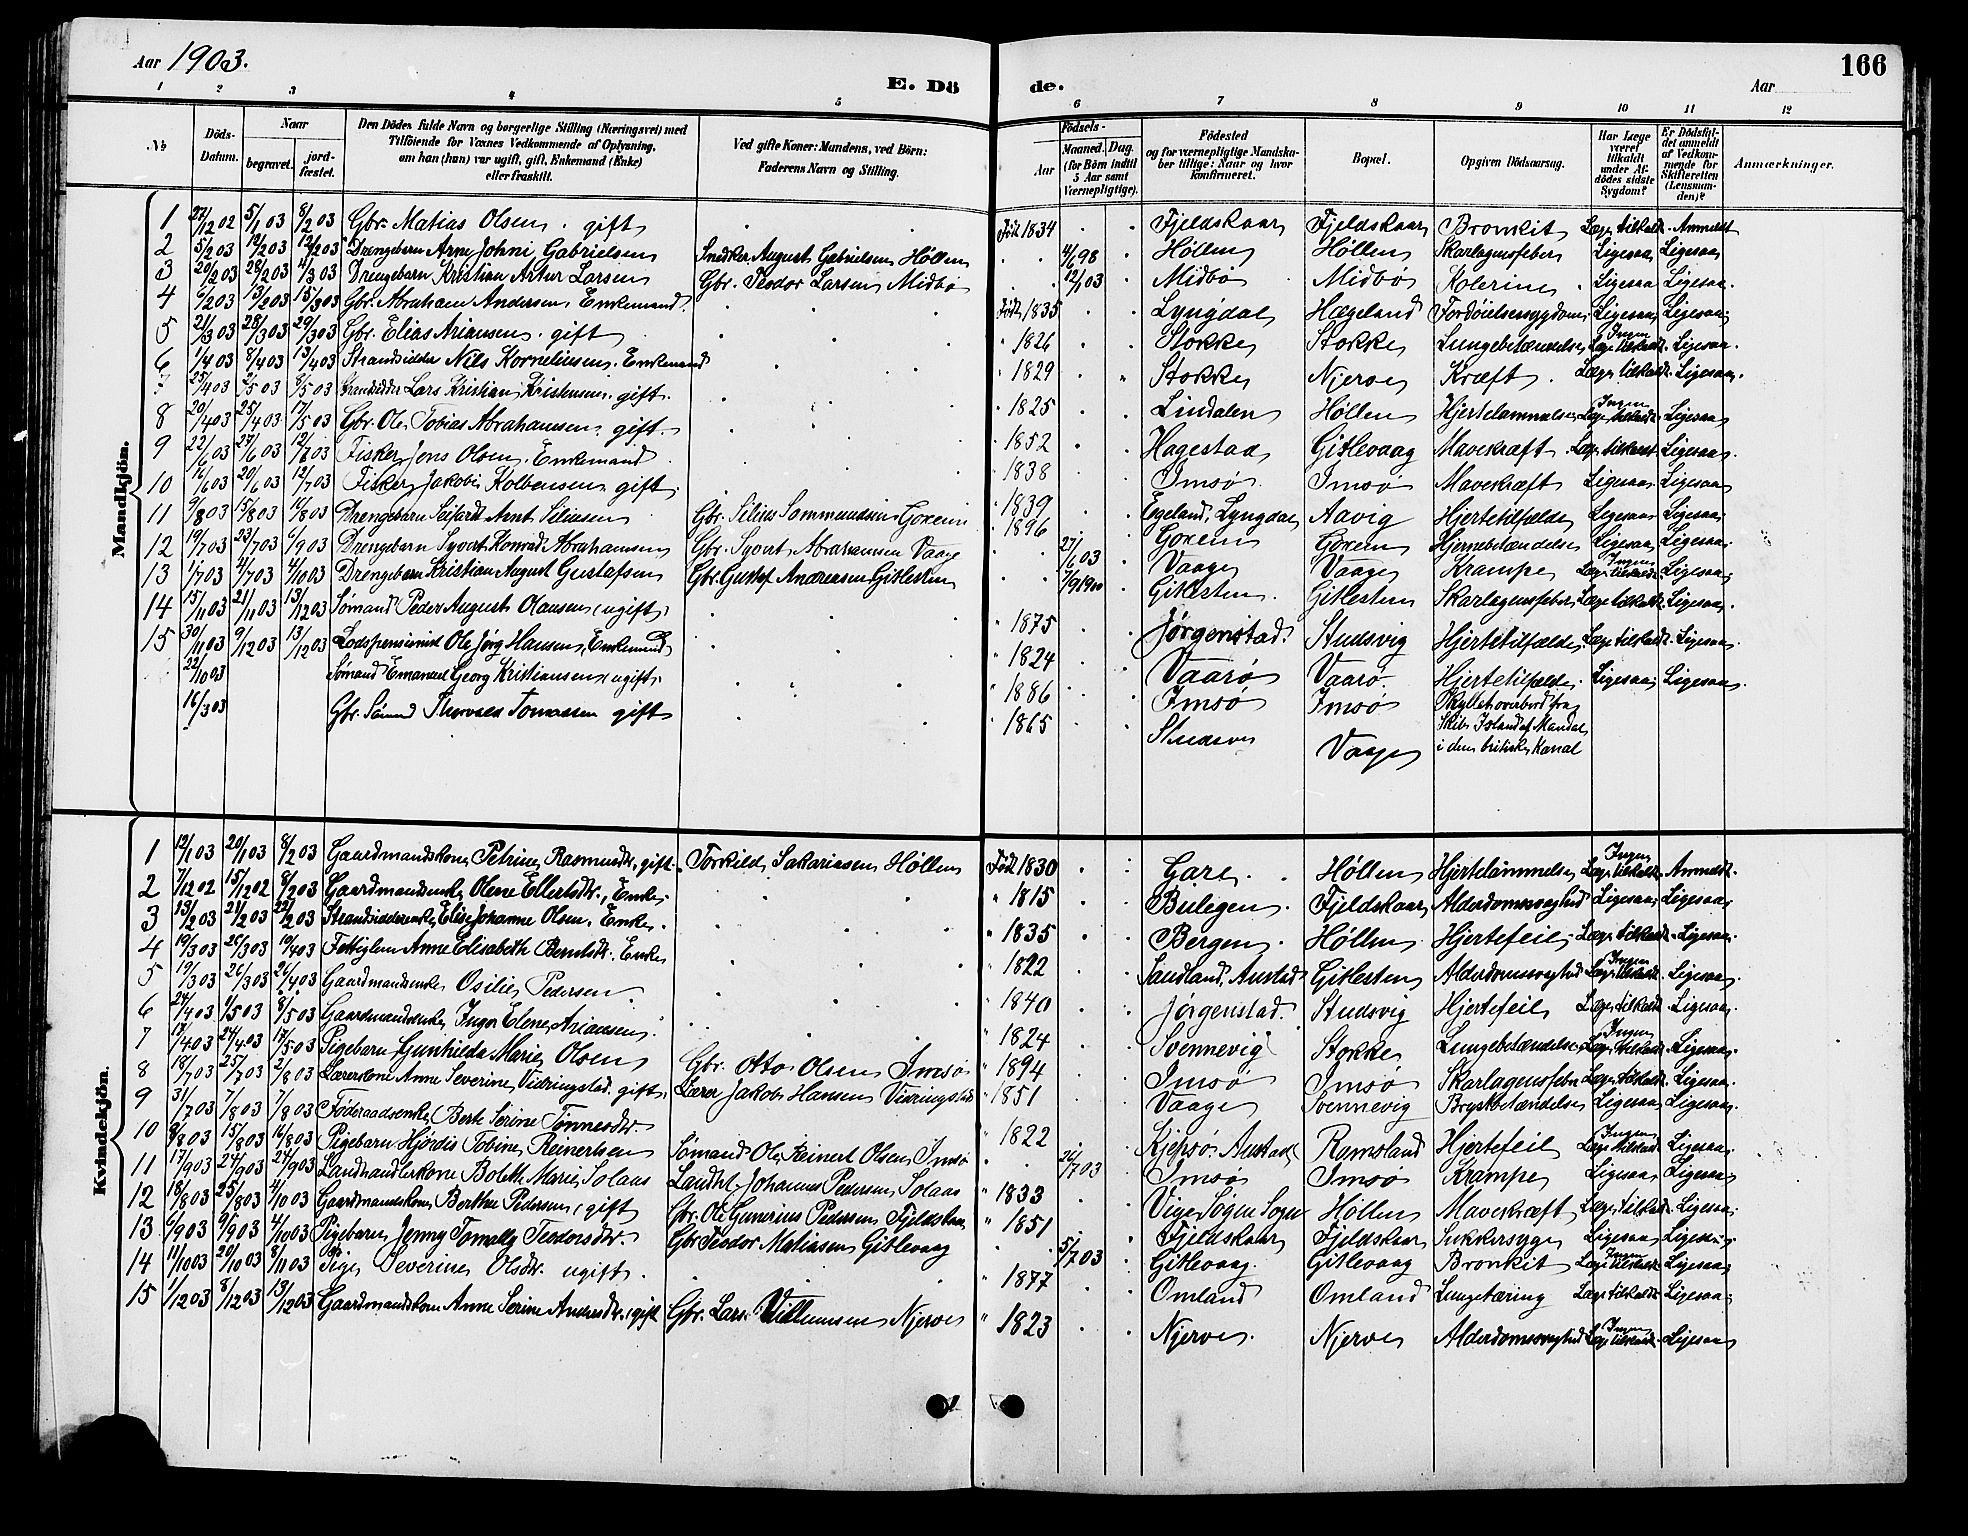 Aar 1903.
E. Dö
de.
Aar
166
1 2 3 4 5 6 7 8 9 10 11 12
No
Döds-Datum.
Naar
begravet.
jord-fæstet.
Den Dödes fulde Navn og borgerlige Stilling (Næringsvei) med
Tilföiende for Voxnes Vedkommende af Oplysning,
om han (hun) var ugift, gift, Enkemand (Enke)
eller fraskilt.
Ved gifte Koner: Mandens, ved Börn:
Faderens Navn og Stilling.
Födsels-
Aar
Maaned. Dag.
(for Börn indtil
5 Aar samt
Værnepligtige).
Födested
og for værnepligtige Mandska-
ber tillige: Naar og hvor
konfirmeret.
Bopæl.
Opgiven Dödsaarsag.
Har Læge
været
tilkaldt
under Af-
dödes sidste
Sygdom?
Er Dödsfal-
det anmeldt
af Vedkom-
mende for
Skifteretten
(Lensman-
den)?
Anmærkninger.
Mandkjön.
1 27/12 02 5/1 03 8/2 03 Gbr. Matias Olsen, gift Født 1834 Fjeldskaar Fjeldskaar Bronkit Læge tilkaldt Anmeldt
2 5/2 03 12/2 03 12/2 03 Drengebarn Arne Johni Gabrielsen Snedker August Gabrielsen Høllen 4/6 98 Høllen Høllen Skarlagensfeber Ligesaa Ligesaa
3 20/2 03 28/2 03 4/3 03 Drengebarn Kristian Artur Larsen Gbr. Teodor Larsen Midbø 12/1 03 Midbø Midbø Kolerine Ligesaa Ligesaa
4 6/2 03 13/2 03 15/3 03 Gbr. Abraham Andersen Enkemand Født 1835 Lyngdal Hægeland Fordøielsessygdom Ligesaa Ligesaa
5 21/3 03 28/3 03 29/3 03 Gbr. Elias Ariansen, gift 1826 Stokke Stokke Lungebetændelse Ingen Læge tilkaldt Ligesaa
6 1/4 03 8/4 03 13/4 03 Strandsidder Nils Korneliussen, Enkemand 1829 Stokke Njerve Kræft Læge tilkaldt Ligesaa
7 25/4 03 2/5 03 8/5 03 Strandsidder Lars Kristian Kristensen, gift 1825 Lindalen Høllen Hjertelammelse Ingen Læge tilkaldt Ligesaa
8 20/4 03 25/4 03 17/5 03 Gbr. Ole Tobias Abrahamsen, gift 1852 Hagestad Gitlevaag Mavekræft Læge tilkaldt Ligesaa
9 22/6 03 27/6 03 12/7 03 Fisker Jens Olsen, Enkemand 1838 Imsø Imsø Mavekræft Ligesaa Ligesaa
10 16/6 03 20/6 03 12/7 03 Fisker Jakob Kolbensen gift 1839 Egeland, Lyngdal Aavig Hjertetilfælde Ligesaa Ligesaa
11 9/8 03 15/8 03 16/8 03 Drengebarn Arnt Siliesen Gbr. Silius Sammundsen Goxem 1896 Goxem Goxem Hjernebetændelse Ligesaa Ligesaa
12 19/7 03 23/7 03 6/9 03 Drengebarn Syvert Konrad Abrahamsen Gbr. Syvert Abrahamsen Vaage 27/6 03 Vaage Vaage Krampe Ingen Læge tilkaldt Ligesaa
13 1/7 03 4/7 03 4/10 03 Drengebarn Kristian August Gustafsen Gbr. Gustaf Andreasen Gitlesten 7/9 1900 Gitlesten Gitlesten Skarlagensfeber Læge tilkaldt Ligesaa
14 15/11 03 21/11 03 13/12 03 Sømand Peder August Olausen, ugift 1875 Jørgenstad Studsvig Hjertetilfælde Læge tilkaldt Ligesaa
15 30/11 03 9/12 03 13/12 03 Lodspensionist Ole Jørg Hansen, Enkemand 1824 Vaarø Vaarø Hjertetilfælde Ligesaa Ligesaa
22/10 03 Sømand Emanuel Georg Kristiansen, ugift 1886 Imsø Imsø Skyllet overbord fra
16/3 03 Gbr. Sømand Tomassen gift 1865 Vaage
Skib Island af Mandal
i den britiske Kanal
Kvindekjön.
1 12/1 03 20/1 03 8/2 03 Gaardmandskone Petrine Rasmusdtr., gift Torkild Sakariasen Høllen Født 1830 Gare Høllen Hjertelammelse Ingen Læge tilkaldt Anmeldt
2 7/12 02 15/12 02 8/2 03 Gaardmandsenke Olene Ellertsdtr., Enke 1815 Birlegen Fjeldskaar Alderdomssvaghed Ligesaa Ligesaa
3 13/2 03 21/2 03 22/2 03 Strandsidderenke Elise Johanne Olsen, Enke 1835 Bergen Høllen Hjertefeil Læge tilkaldt Ligesaa
4 19/3 03 26/3 03 19/4 03 Fattiglem Anne Elisabeth Berntsdtr. Enke 1822 Saudland, Austad Gitlesten Alderdomssvaghed Ingen Læge tilkaldt Ligesaa
5 19/3 03 26/3 03 26/4 03 Gaardmandsenke Osilie Pedersen 1840 Jørgenstad Studsvig Hjertefeil Læge tilkaldt Ligesaa
6 24/4 03 1/5 03 8/5 03 Gaardmandsenke Inger Elene Ariansen 1824 Svennevig Stokke Lungebetændelse Ingen Læge tilkaldt Ligesaa
7 17/4 03 24/4 03 17/5 03 Pigebarn Gunhilda Marie Olsen Gbr. Otto Olsen Imsø 1894 Imsø Imsø Skarlagensfeber Læge tilkaldt Ligesaa
8 18/7 03 25/7 03 2/8 03 Lærerkone Anne Severine Vidringstad, gift Lærer Jakob Hansen Vidringstad 1851 Vaage Svennevig Brystbetændelse Ligesaa Ligesaa
9 31/7 03 7/8 03 7/8 03 Føderaadsenke Berte Serine Tønnesdtr. 1822 Kjepsø, Austad Ramsland Hjertefeil Ingen Læge tilkaldt Ligesaa
10 8/8 03 15/8 03 16/8 03 Pigebarn Hjørdis Tobine Reinertsen Sømand Ole Reinert Olsen Imsø 26/7 03 Imsø Imsø Krampe Ligesaa Ligesaa
11 17/9 03 24/9 03 24/9 03 Landhandlerkone Bolette Marie Solaas Landhl. Johannes Pedersen, Solaas 1833 Vige, Søgne Sogn Høllen Mavekræft Læge tilkaldt Ligesaa
12 18/8 03 25/8 03 4/10 03 Gaardmandskone Berthe Pedersen, gift Gbr. Ole Gunerius Pedersen Fjeldskaar 1851 Fjeldskaar Fjeldskaar Sukkersyge Ligesaa Ligesaa
13 6/9 03 9/9 03 4/10 03 Pigebarn Jenny Tomally Teodorsdtr. Gbr. Teodor Matiasen Gitlevaag 5/7 03 Gitlevaag Gitlevaag Bronkit Ingen Læge tilkaldt Ligesaa
14 11/10 03 20/10 03 8/11 03 Pige Severine Olsdtr. ugift 1877 Omland Omland Lungetæring Læge tilkaldt Ligesaa
15 1/12 03 8/12 03 13/12 03 Gaardmandskone Anne Serine Andersdtr., gift Gbr. Lars Villumsen Njerve 1823 Njerve Njerve Alderdomssvaghed Ingen Læge tilkaldt Ligesaa